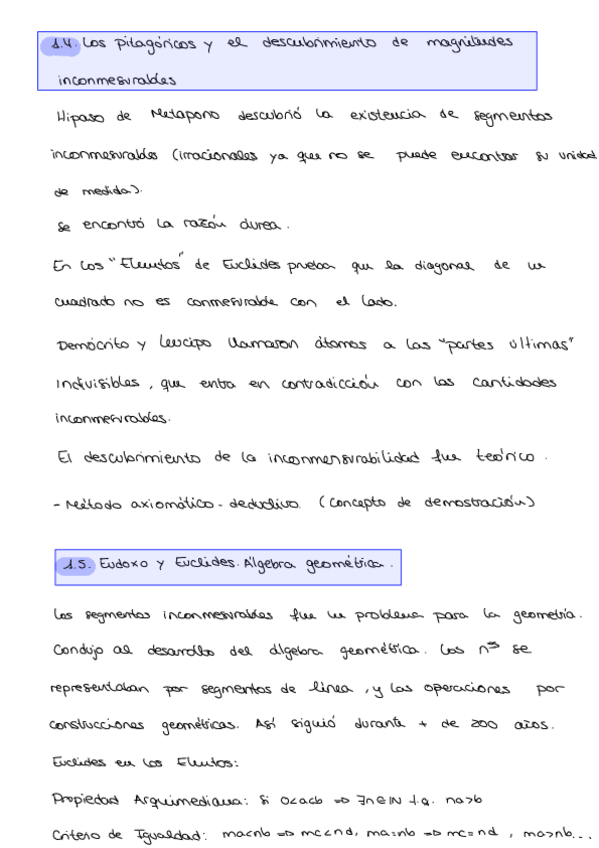 1.4. Los pitagóricos y el descubrimiento de magnitudes
inconmesurables
Hipaso de Metapono descubrió la existencia de segmentos
inconmesurables (irracionales ya que no se puede encontrar su unidad
de medida).
Se encontró la razón áurea.
En los "Elementos" de Euclides prueba que la diagonal de un
cuadrado no es conmesurable con el lado.
Demócrito y Leucipo llamaron átomos a las "partes últimas"
indivisibles, que entra en contradicción con las cantidades
inconmesurables.
El descubrimiento de la inconmensurabilidad fue teórico.
- Método axiomático-deductivo. (concepto de demostración)
1.5. Eudoxo y Euclides. Álgebra geométrica.
Los segmentos inconmesurables fue un problema para la geometría.
Condujo al desarrollo del álgebra geométrica. Los nos se
representaban por segmentos de línea, y las operaciones por
construcciones geométricas. Así siguió durante + de 200 años.
Euclides en los Elementos:
Propiedad Arquimediana: Si 0<a<b => ∃n∈ℕ t.q. na>b
Criterio de Igualdad: ma<nb => mc<nd, ma=nb => mc=nd, ma>nb...